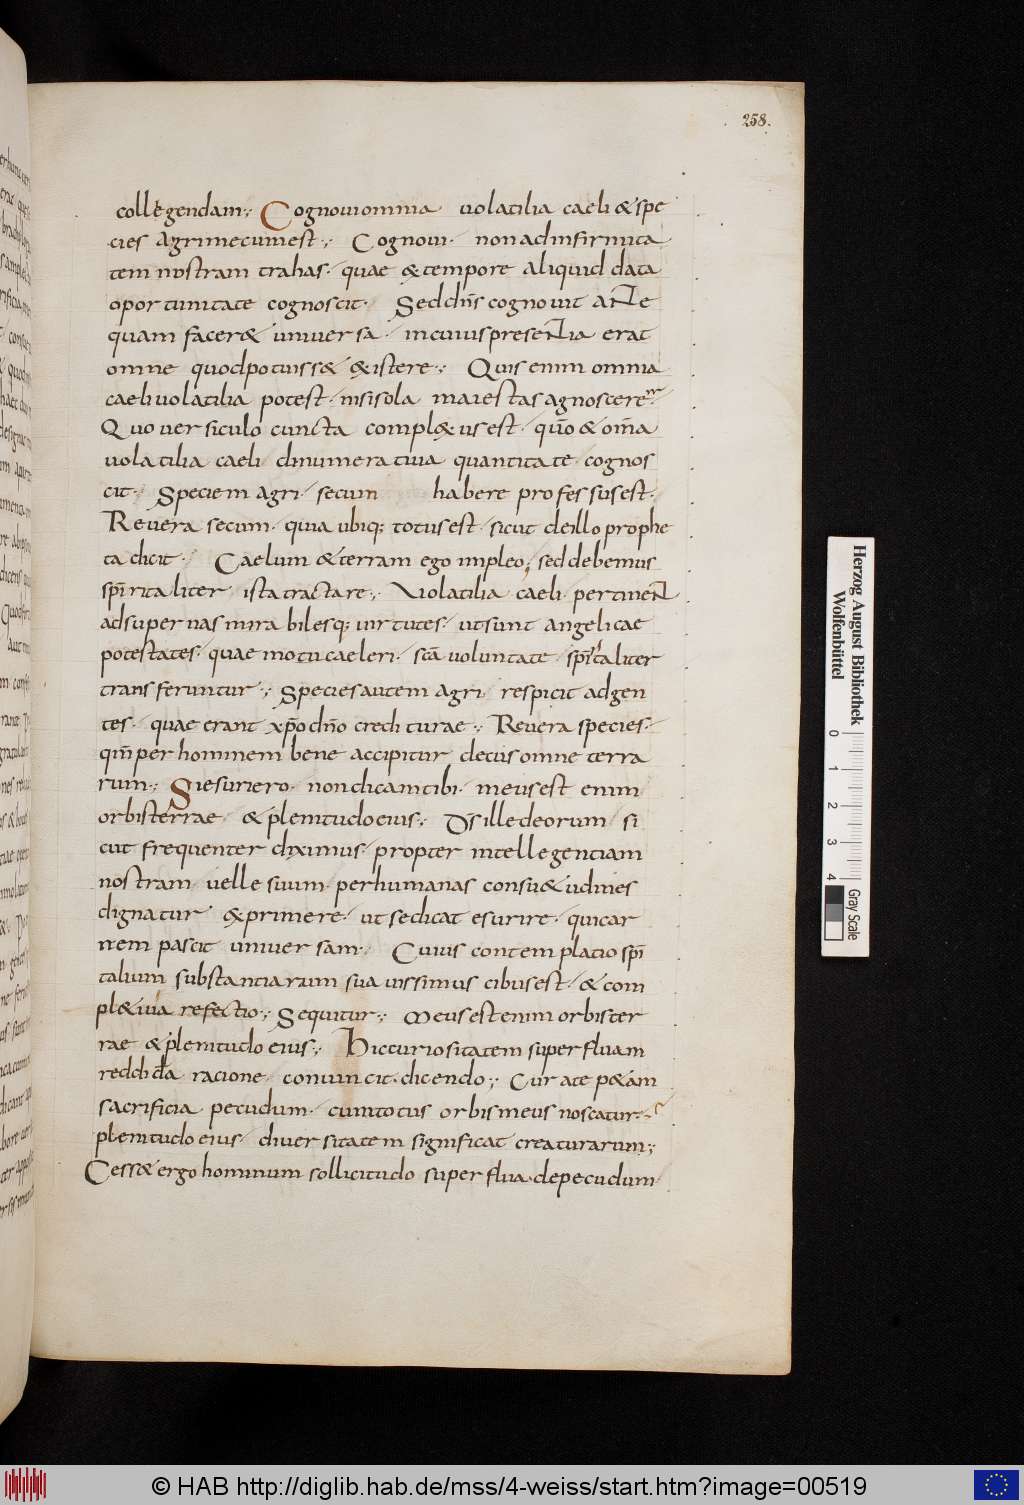 258.
collegendam; Cognoui omnia uolatilia caeli & spe
cies agri mecum est; Cognoui. non ad infirmita
tem nostram trahas. quae & tempore aliquid data
oportunitate cognoscit. Sed d̄s cognouit ante
quam facer& uniuersa. in cuius presentia erat
omne quod potuiss& existere; Quis enim omnia
caeli uolatilia potest. nisi sola maiestas agnoscere
Quo uersiculo cuncta compl&us est. qūo & om̄a
uolatilia caeli dinumeratiua quantitate cognos
cit. Speciem agri secum habere professus est.
Reuera secum. quia ubiq; totus est. sicut de illo prophe
ta dicit. Caelum & terram ego impleo; sed debemus
sp̄iritaliter ista tractare; Uolatilia caeli pertinent
ad supernas mirabilesq; uirtutes. ut sunt angelicae
potestates. quae motu caeleri. sc̄a uoluntate sp̄italiter
transferuntur; Species autem agri respicit ad gen
tes. quae erant xp̄o dn̄o crediturae; Reuera species.
qm̄ per hominem bene accipitur decus omne terra
rum; Si esuriero. non dicam tibi. meus est enim
orbis terrae & plenitudo eius; D̄s ille deorum si
cut frequenter diximus. propter intellegentiam
nostram uelle suum. per humanas consu&udines
dignatur &primere. ut se dicat esurire. qui car
nem pascit uniuersam. Cuius contemplatio sp̄i
talium substantiarum suauissimus cibus est. & com
pl&iua refectio; Sequitur; Meus est enim orbis ter
rae & plenitudo eius; Hic curiositatem superfluam
reddida racione conuincit. dicendo; Cur a te p&am
sacrificia pecudum. cum totus orbis meus noscatur.
plenitudo eius diuersitatem significat creaturarum;
Cess& ergo hominum sollicitudo superflua. de pecudum
Herzog August Bibliothek
Wolfenbüttel
0 1 2 3 4
Gray Scale
© HAB http://diglib.hab.de/mss/4-weiss/start.htm?image=00519